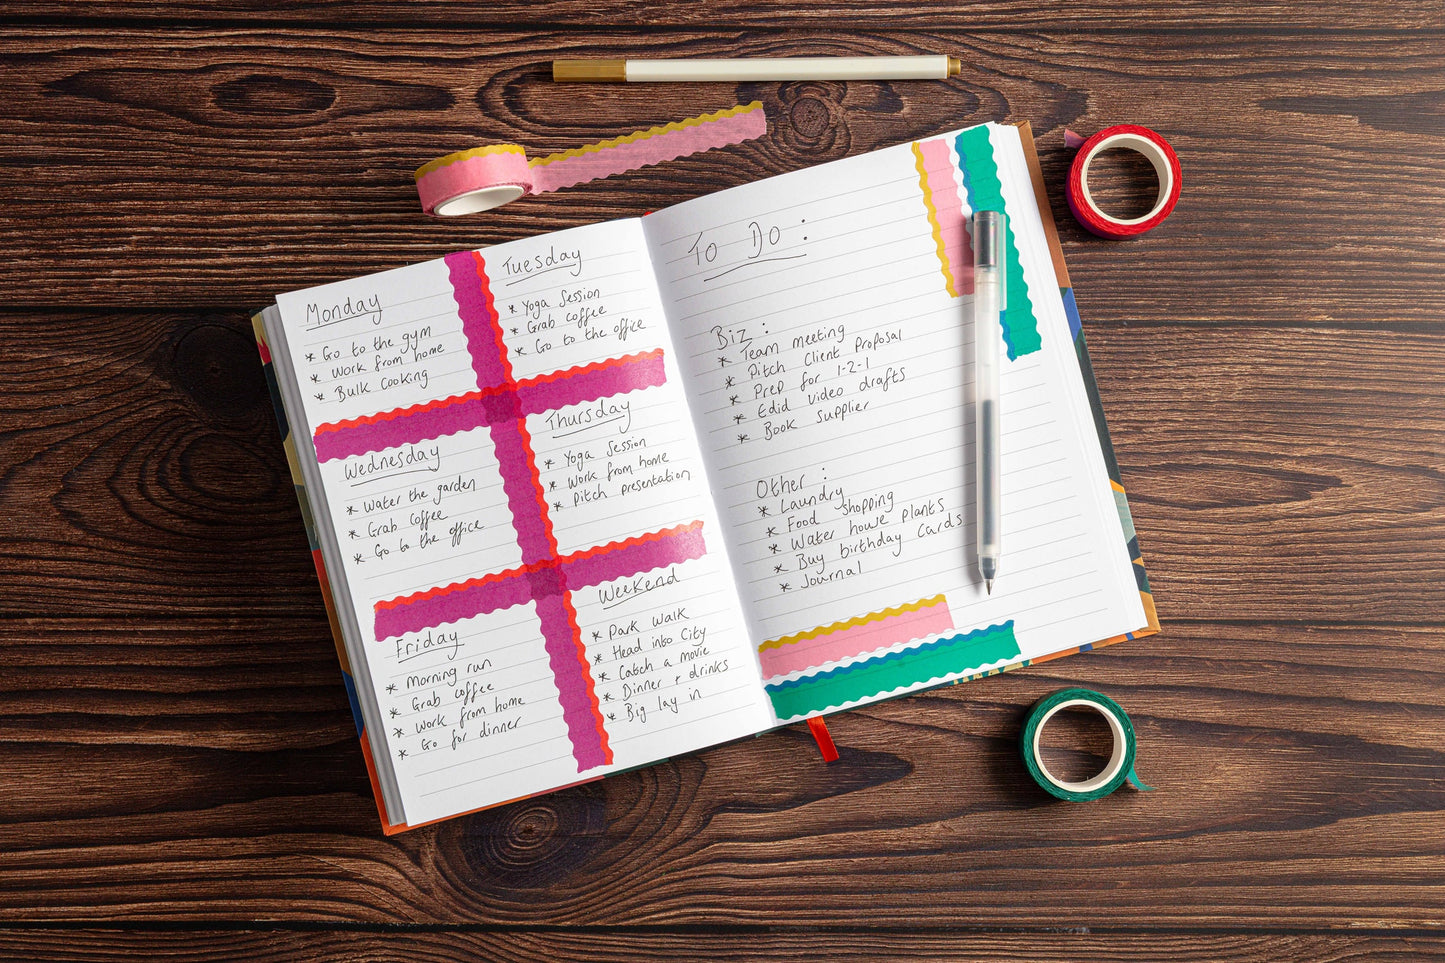 Monday
* Go to the gym
* Work from home
* Bulk Cooking
Tuesday
* Yoga Session
* Grab coffee
* Go to the office
Wednesday
* Water the garden
* Grab Coffee
* Go to the office
Thursday
* Yoga Session
* Work from home
* Pitch presentation
Friday
* Morning run
* Grab coffee
* Work from home
* Go for dinner
Weekend
* Park Walk
* Head into City
* Catch a movie
* Dinner + drinks
* Big lay in
To Do :
Biz :
* Team meeting
* Pitch Client Proposal
* Prep for 1-2-1
* Edid video drafts
* Book Supplier
Other :
* Laundry
* Food shopping
* Water house plants
* Buy birthday Cards
* Journal